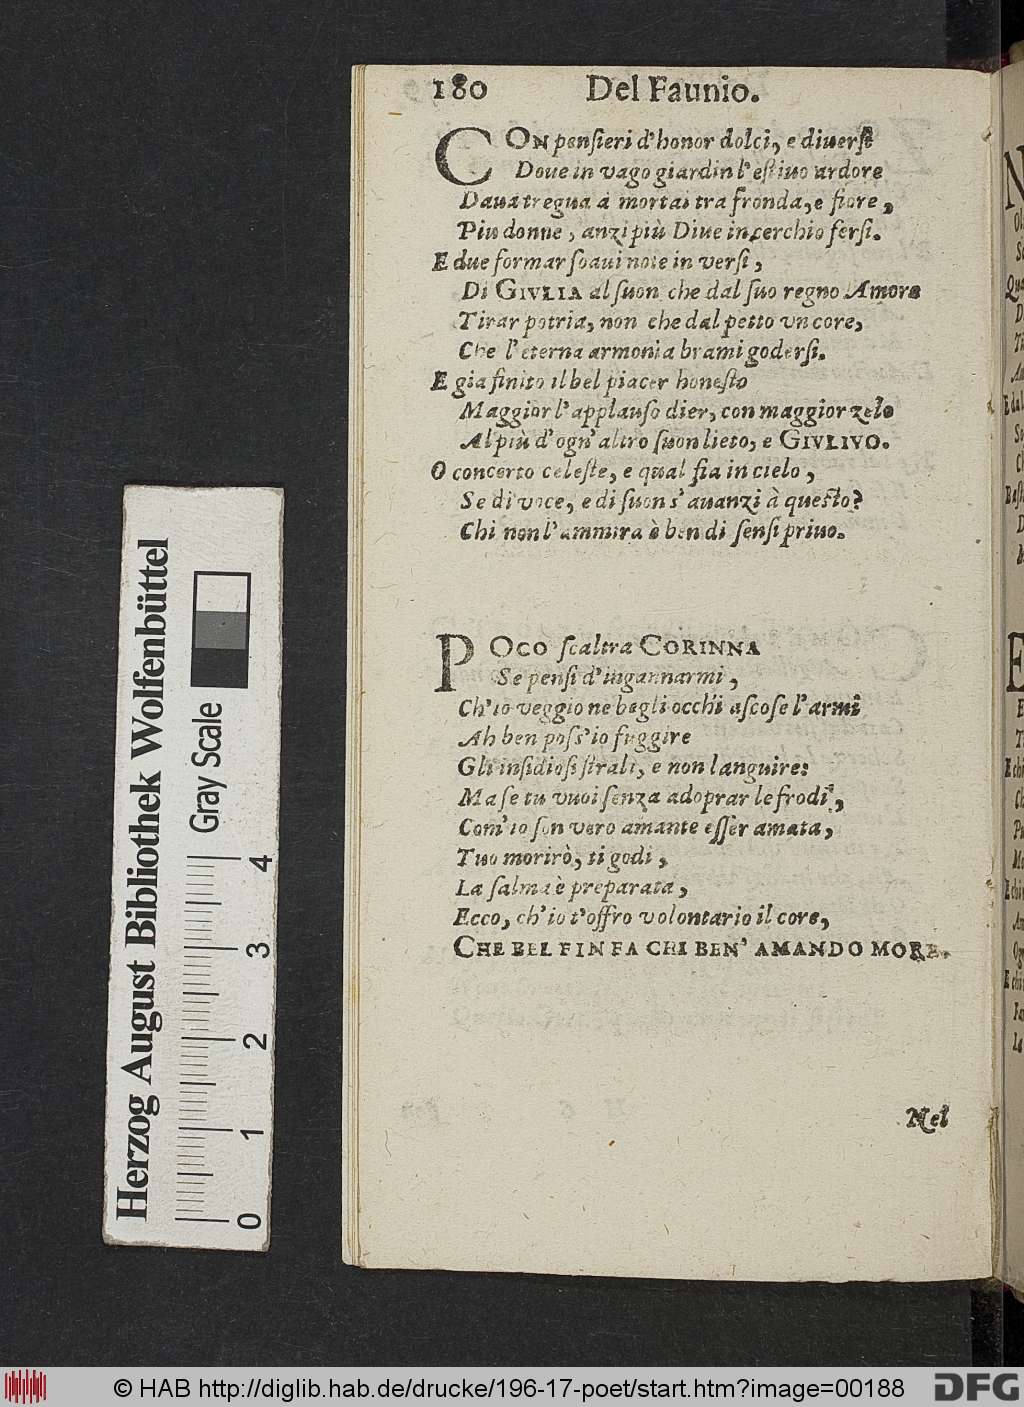 180 Del Faunio.
CON pensieri d'honor dolci, e diuerse
Doue in vago giardin l'estiuo ardore
Daua tregua a mortai tra fronda, e fiore,
Piu donne, anzi più Diue in cerchio fersi.
E due formar soaui note in versi,
Di GIVLIA al suon che dal suo regno Amore
Tirar potria, non che dal petto vn core,
Che l'eterna armonia brami godersi.
E gia finito il bel piacer honesto
Maggior l'applauso dier, con maggior zelo
Al più d'ogn'altro suon lieto, e GIVLIVO.
O concerto celeste, e qual fia in cielo,
Se di voce, e di suon s'auanzi à questo?
Chi non l'ammira è ben di sensi priuo.
POCO scaltra CORINNA
Se pensi d'ingannarmi,
Ch'io veggio ne begli occhi ascose l'armi
Ah ben poss'io fuggire
Gli insidiosi strali, e non languire:
Ma se tu vuoi senza adoprar le frodi,
Com'io son vero amante esser amata,
Tuo morirò, ti godi,
La salma è preparata,
Ecco, ch'io t'offro volontario il core,
CHE BEL FIN FA CHI BEN' AMANDO MORE.
Nel
Herzog August Bibliothek Wolfenbüttel
Gray Scale
0 1 2 3 4
© HAB http://diglib.hab.de/drucke/196-17-poet/start.htm?image=00188
DFG